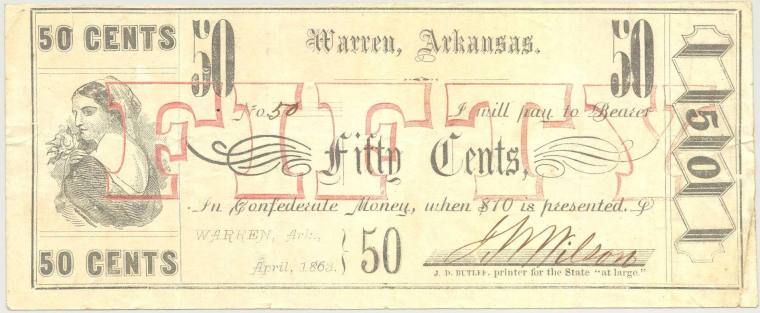 50 CENTS
50
Warren, Arkansas.
50
No. 50
I will pay to Bearer
FIFTY
Fifty Cents,
In Confederate Money, when $10 is presented.
WARREN, Ark.,
April, 1863.
50
J W Wilson
J. D. BUTLER, printer for the State "at large."
50 CENTS
50